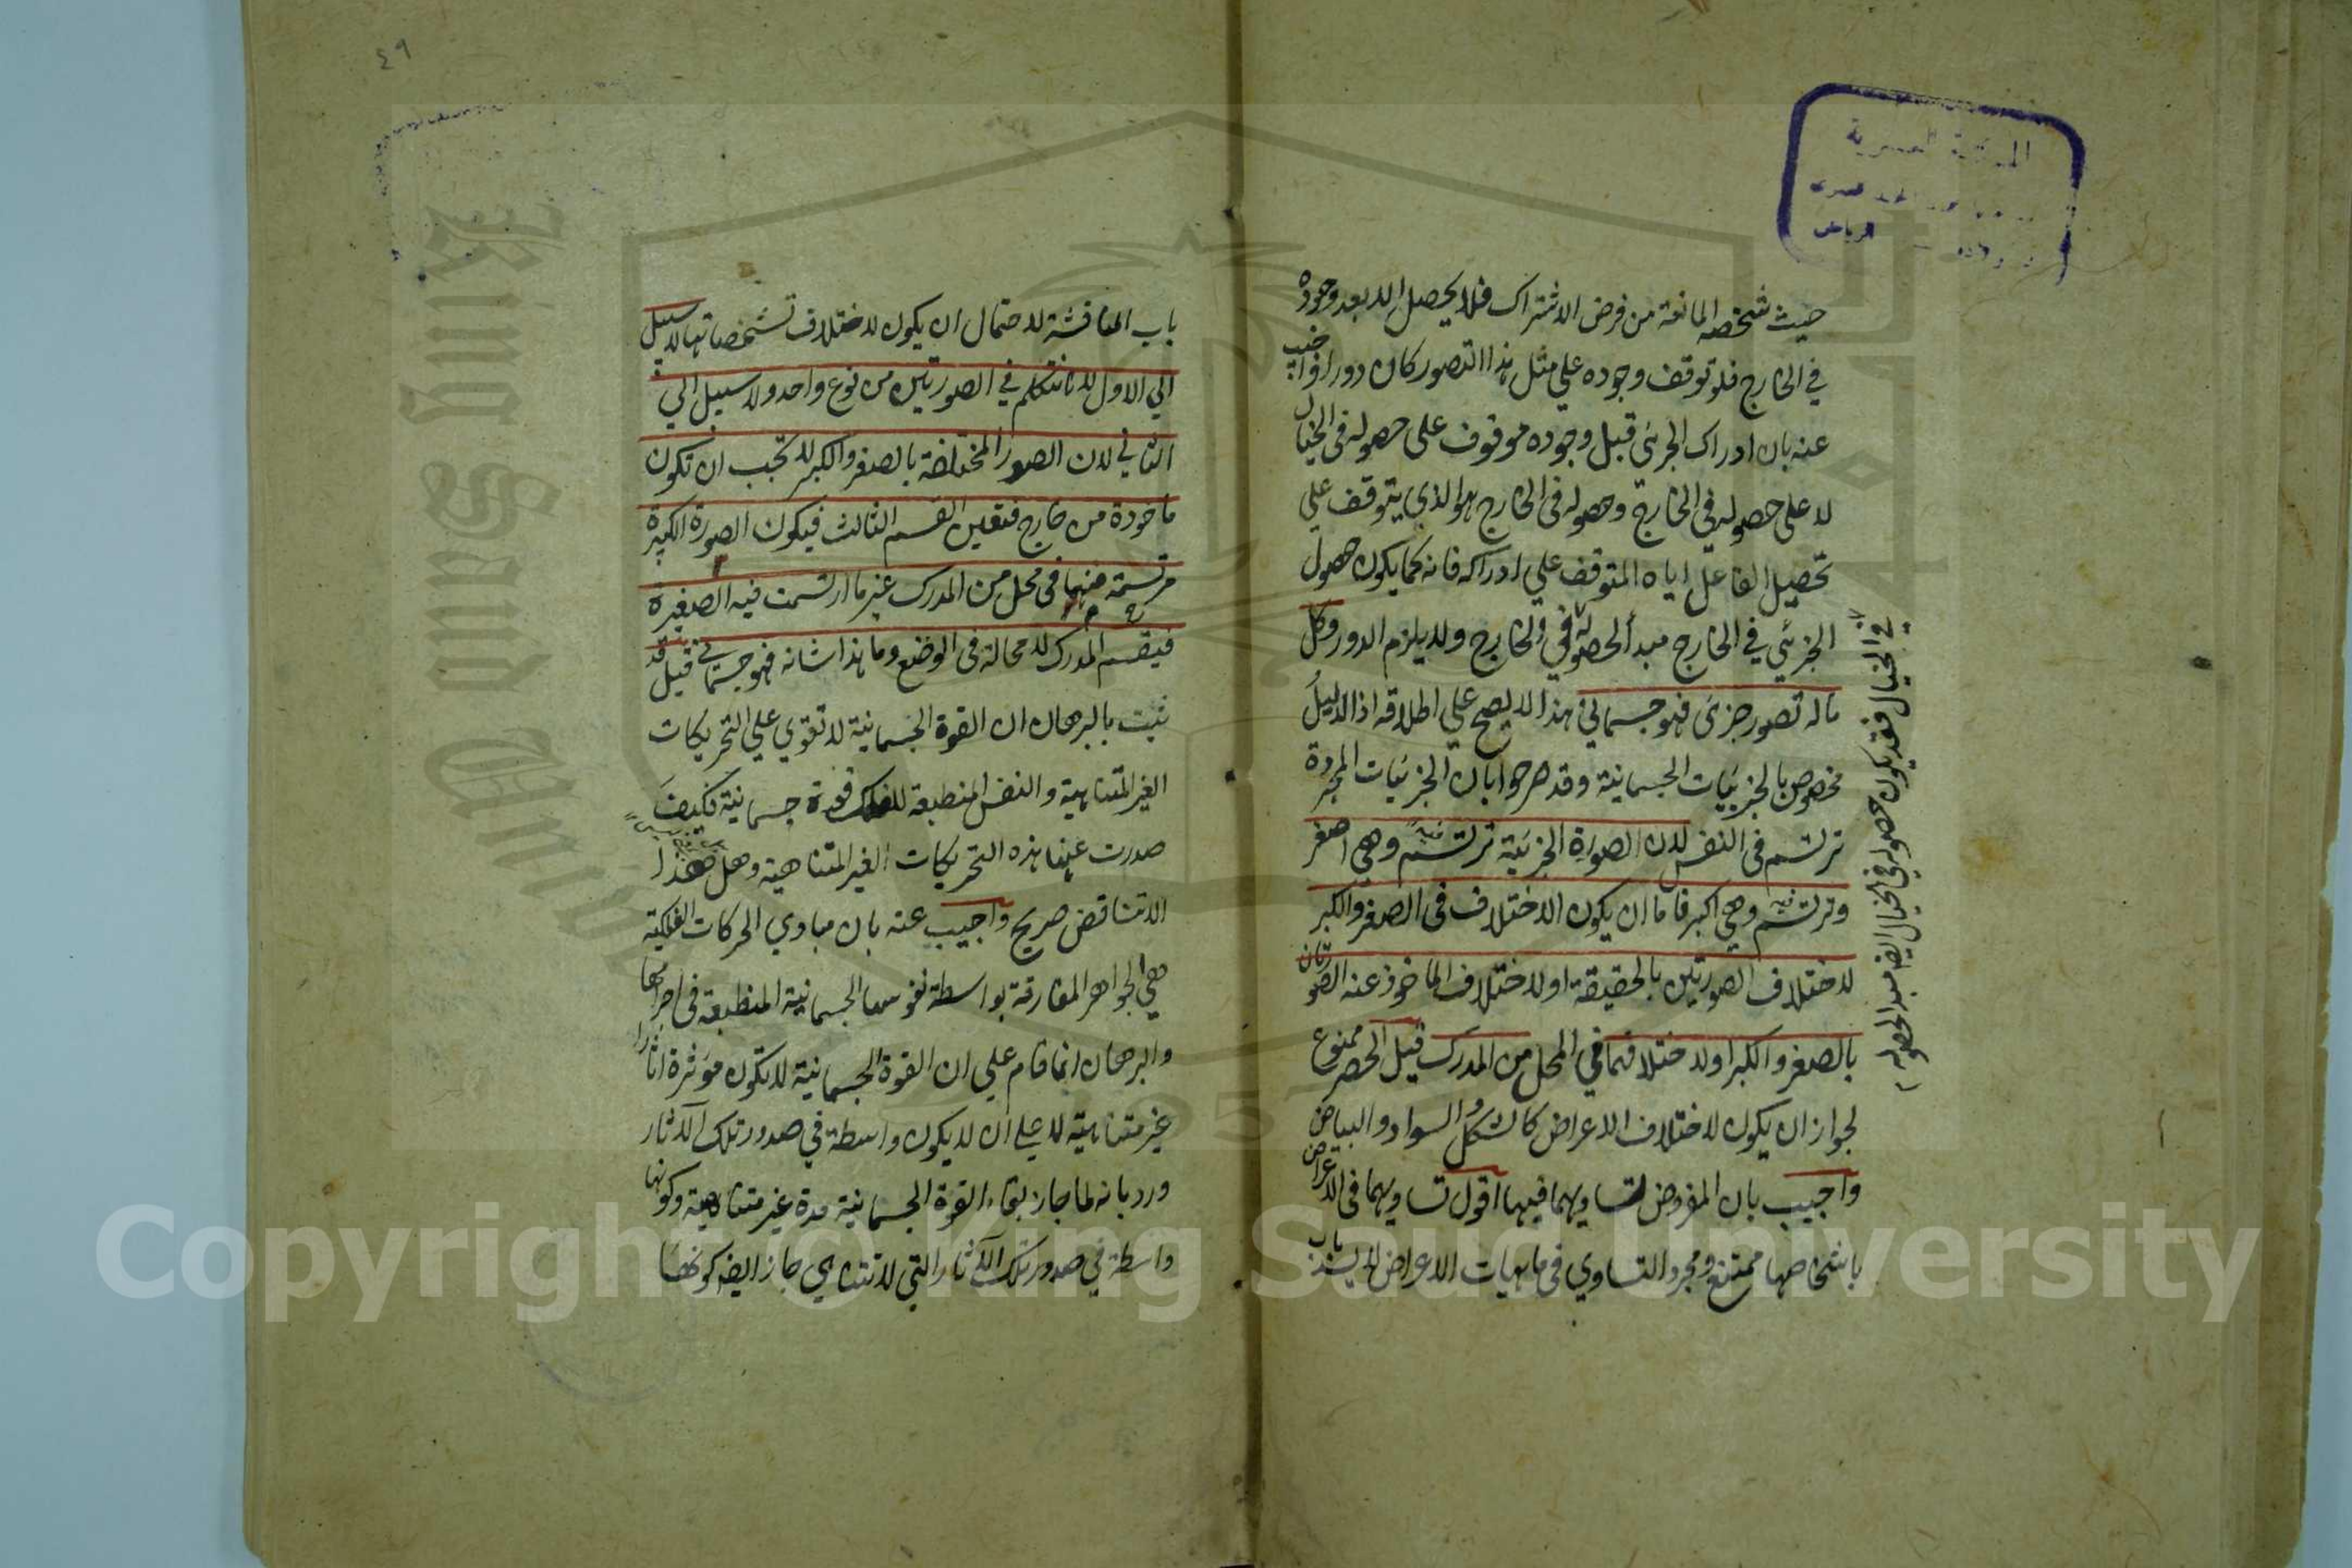 حيث شخصه المانعة من فرض الاشتراك فلا يحصل الا بعد وجوده
في الخارج فلو توقف وجوده علي مثل هذا التصور كان دورا واجيب
عنه بان ادراك الجزئى قبل وجوده موقوف على حصوله فى الخيال
لا على حصوله فى الخارج وحصوله فى الخارج هو الذي يتوقف علي
تحصيل الفاعل اياه المتوقف علي ادراكه فانه كما يكون حصول
الجزئي في الخارج مبدأ لحصوله في الخارج ولا يلزم الدور وكل
ماله تصور جزئ فهو جسماني هذا لا يصح علي اطلاقه اذ الدليل
مخصوص بالجزئيات الجسمانية وقد صرحوا بان الجزئيات المجردة
ترتسم فى النفس لان الصورة الجزئية ترتسم فيه وهي اصغر
وترتسم فيه وهي اكبر فاما ان يكون الاختلاف فى الصغر والكبر
لاختلاف الصورتين بالحقيقة او لاختلاف الماخوذ عنه الصورتان
بالصغر والكبر او لاختلافهما في المحل من المدرك قيل الحصر ممنوع
لجواز ان يكون لاختلاف الاعراض كالشكل والسواد والبياض
واجيب بان المفروض تساويهما فيها اقول تساويهما فى الاعراض
باشخاصها ممتنع ومجرد التساوي فى ماهيات الاعراض لا يسد باب
في الخيال فقد يكون حصوله في الخيال ايضا مبدا لحصوله
٤٩
باب المناقشة لاحتمال ان يكون لاختلاف تشخصاتها لا سبيل
الي الاول لانا نتكلم في الصورتين من نوع واحد ولا سبيل الي
الثاني لان الصور المختلفة بالصغر والكبر لا تجب ان تكون
ماخودة من خارج فتعين القسم الثالث فيكون الصورة الكبيرة
مرتسمة منهما فى محل من المدرك غير ما ارتسمت فيه الصغيرة
فينقسم المدرك لا محالة فى الوضع وما هذا شانه فهو جسماني قيل قد
ثبت بالبرهان ان القوة الجسمانية لا تقوي علي التحريكات
الغير المتناهية والنفس المنطبعة للفلك قوة جسمانية فكيف
صدرت عنها هذه التحريكات الغير المتناهية وهل هذا
الا تناقض صريح واجيب عنه بان مبادي الحركات الفلكية
هي الجواهر المفارقة بواسطة نفوسها الجسمانية المنطبعة فى اجرامها
والبرهان انما قام علي ان القوة الجسمانية لا تكون مؤثرة اثارا
غير متناهية لا علي ان لا يكون واسطة في صدور تلك الآثار
ورد بانه لما جاز بقاء القوة الجسمانية مدة غير متناهية وكونها
واسطة في صدور تلك الآثار التي لا تتناهي جاز ايضا كونها
Copyright © King Saud University